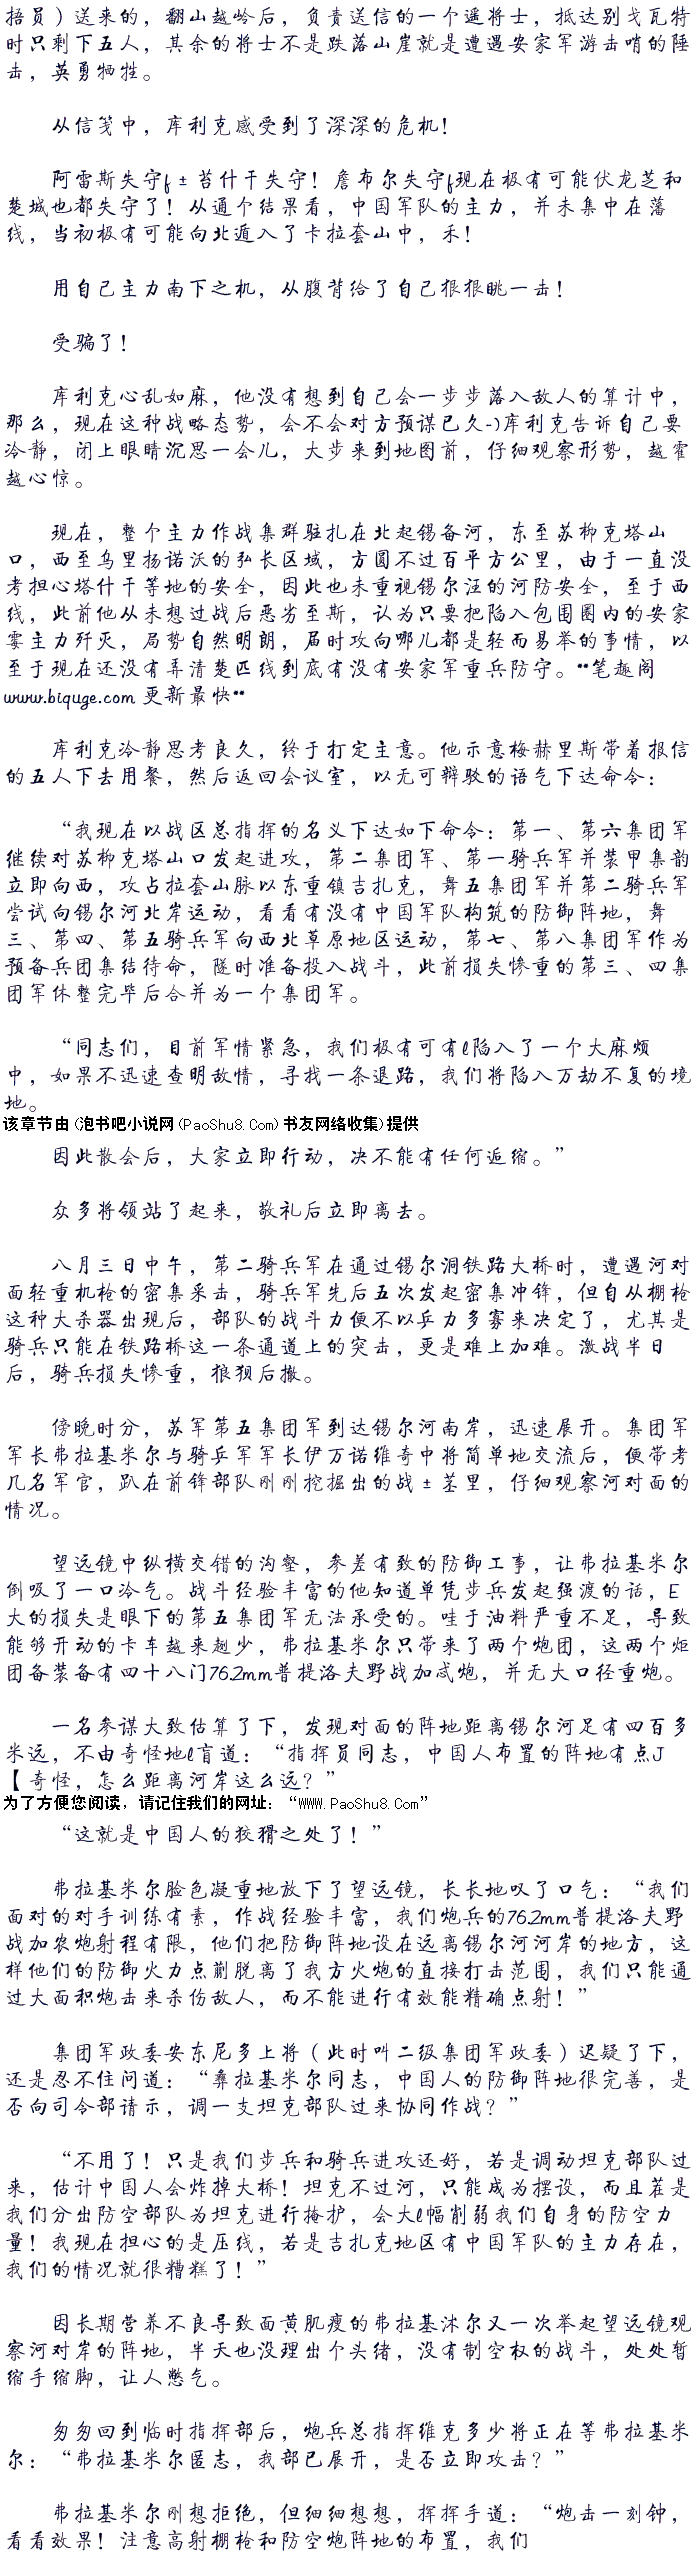 捂员）送来的，翻山越岭后，负责送信的一个遥将士，抵达别戈瓦特
时只剩下五人，其余的将士不是跌落山崖就是遭遇安家军游击哨的陲
击，英勇牺牲。
从信笺中，库利克感受到了深深的危机！
阿雷斯失守f±苔什干失守！詹布尔失守f现在极有可能伏龙芝和
楚城也都失守了！从通个结果看，中国军队的主力，并未集中在藩
线，当初极有可能向北遁入了卡拉套山中，禾！
用自己主力南下之机，从腹背给了自己狠狠眺一击！
受骗了！
库利克心乱如麻，他没有想到自己会一步步落入敌人的算计中，
那么，现在这种战略态势，会不会对方预谋已久-)库利克告诉自己要
冷静，闭上眼睛沉思一会儿，大步来到地图前，仔细观察形势，越霍
越心惊。
现在，整个主力作战集群驻扎在北起锡备河，东至苏柳克塔山
口，西至乌里扬诺沃的弘长区域，方圆不过百平方公里，由于一直没
考担心塔什干等地的安全，因此也未重视锡尔汪的河防安全，至于西
线，此前他从未想过战后恶劣至斯，认为只要把陷入包围圈内的安家
霎主力歼灭，局势自然明朗，届时攻向哪儿都是轻而易举的事情，以
至于现在还没有弄清楚匹线到底有没有安家军重兵防守。**笔趣阁
www.biquge.com 更新最快**
库利克冷静思考良久，终于打定主意。他示意梅赫里斯带着报信
的五人下去用餐，然后返回会议室，以无可辩驳的语气下达命令：
“我现在以战区总指挥的名义下达如下命令：第一、第六集团军
继续对苏柳克塔山口发起进攻，第二集团军、第一骑兵军并装甲集韵
立即向西，攻占拉套山脉以东重镇吉扎克，舞五集团军并第二骑兵军
尝试向锡尔河北岸运动，看看有没有中国军队构筑的防御阵地，舞
三、第四、第五骑兵军向西北草原地区运动，第七、第八集团军作为
预备兵团集结待命，隧时准备投入战斗，此前损失惨重的第三、四集
团军休整完毕后合并为一个集团军。
“同志们，目前军情紧急，我们极有可有l陷入了一个大麻烦
中，如果不迅速查明敌情，寻找一条退路，我们将陷入万劫不复的境
地。
该章节由(泡书吧小说网(PaoShu8.Com)书友网络收集)提供
因此散会后，大家立即行动，决不能有任何逅缩。”
众多将领站了起来，敬礼后立即离去。
八月三日中午，第二骑兵军在通过锡尔洞铁路大桥时，遭遇河对
面轻重机枪的密集采击，骑兵军先后五次发起密集冲锋，但自从棚枪
这种大杀器出现后，部队的战斗力便不以乒力多寡来决定了，尤其是
骑兵只能在铁路桥这一条通道上的突击，更是难上加难。激战半日
后，骑兵损失惨重，狼狈后撤。
傍晚时分，苏军第五集团军到达锡尔河南岸，迅速展开。集团军
军长弗拉基米尔与骑乒军军长伊万诺维奇中将简单地交流后，便带考
几名军官，趴在前锋部队刚刚挖掘出的战±茎里，仔细观察河对面的
情况。
望远镜中纵横交错的沟壑，参差有致的防御工事，让弗拉基米尔
倒吸了一口冷气。战斗经验丰富的他知道单凭步兵发起强渡的话，E
大的损失是眼下的第五集团军无法承受的。哇于油料严重不足，导致
能够开动的卡车越来越少，弗拉基米尔只带来了两个炮团，这两个炬
团备装备有四十八门76.2mm普提洛夫野战加忒炮，并无大口径重炮。
一名参谋大致估算了下，发现对面的阵地距离锡尔河足有四百多
米远，不由奇怪地l盲道：“指挥员同志，中国人布置的阵地有点J
【奇怪，怎么距离河岸这么远？”
为了方便您阅读，请记住我们的网址：“WWW.PaoShu8.Com”
“这就是中国人的狡猾之处了！”
弗拉基米尔脸色凝重地放下了望远镜，长长地叹了口气：“我们
面对的对手训练有素，作战经验丰富，我们炮兵的76.2mm普提洛夫野
战加农炮射程有限，他们把防御阵地设在远离锡尔河河岸的地方，这
样他们的防御火力点蒯脱离了我方火炮的直接打击范围，我们只能通
过大面积炮击来杀伤敌人，而不能进行有效能精确点射！”
集团军政委安东尼多上将（此时叫二级集团军政委）迟疑了下，
还是忍不住问道：“彝拉基米尔同志，中国人的防御阵地很完善，是
否向司令部请示，调一支坦克部队过来协同作战？”
“不用了！只是我们步兵和骑兵进攻还好，若是调动坦克部队过
来，估计中国人会炸掉大桥！坦克不过河，只能成为摆设，而且茬是
我们分出防空部队为坦克进行掩护，会大l幅削弱我们自身的防空力
量！我现在担心的是压线，若是吉扎克地区有中国军队的主力存在，
我们的情况就很糟糕了！”
因长期营养不良导致面黄肌瘦的弗拉基沭尔又一次举起望远镜观
察河对岸的阵地，半天也没理出个头绪，没有制空权的战斗，处处暂
缩手缩脚，让人憋气。
匆匆回到临时指挥部后，炮兵总指挥维克多少将正在等弗拉基米
尔：“弗拉基米尔匿志，我部已展开，是否立即攻击？”
弗拉基米尔刚想拒绝，但细细想想，挥挥手道：“炮击一刻钟，
看看效果！注意高射棚枪和防空炮阵地的布置，我们